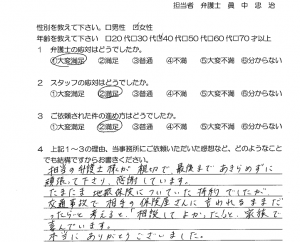 担当者 弁護士 眞中忠治
性別を教えて下さい。□男性 ☑女性
年齢を教えて下さい □20代□30代☑40代□50代□60代□70才以上
1 弁護士の応対はどうでしたか。
①大変満足 ②満足 ③普通 ④不満 ⑤大変不満 ⑥分からない
2 スタッフの応対はどうでしたか。
①大変満足 ②満足 ③普通 ④不満 ⑤大変不満 ⑥分からない
3 ご依頼された件の進め方はどうでしたか。
①大変満足 ②満足 ③普通 ④不満 ⑤大変不満 ⑥分からない
4 上記1~3の理由、当事務所にご依頼いただいた感想など、どのようなこと
でも結構ですからお書きください。
担当の弁護士様が親切で最後まであきらめずに
頑張って下さり、感謝しています。
たまたま地震保険についていた特約でしたが
交通事故で相手の保険屋さんに言われるままだ
ったらと考えると、相談してよかったねと、家族で
喜んでいます。
本当にありがとうございました。